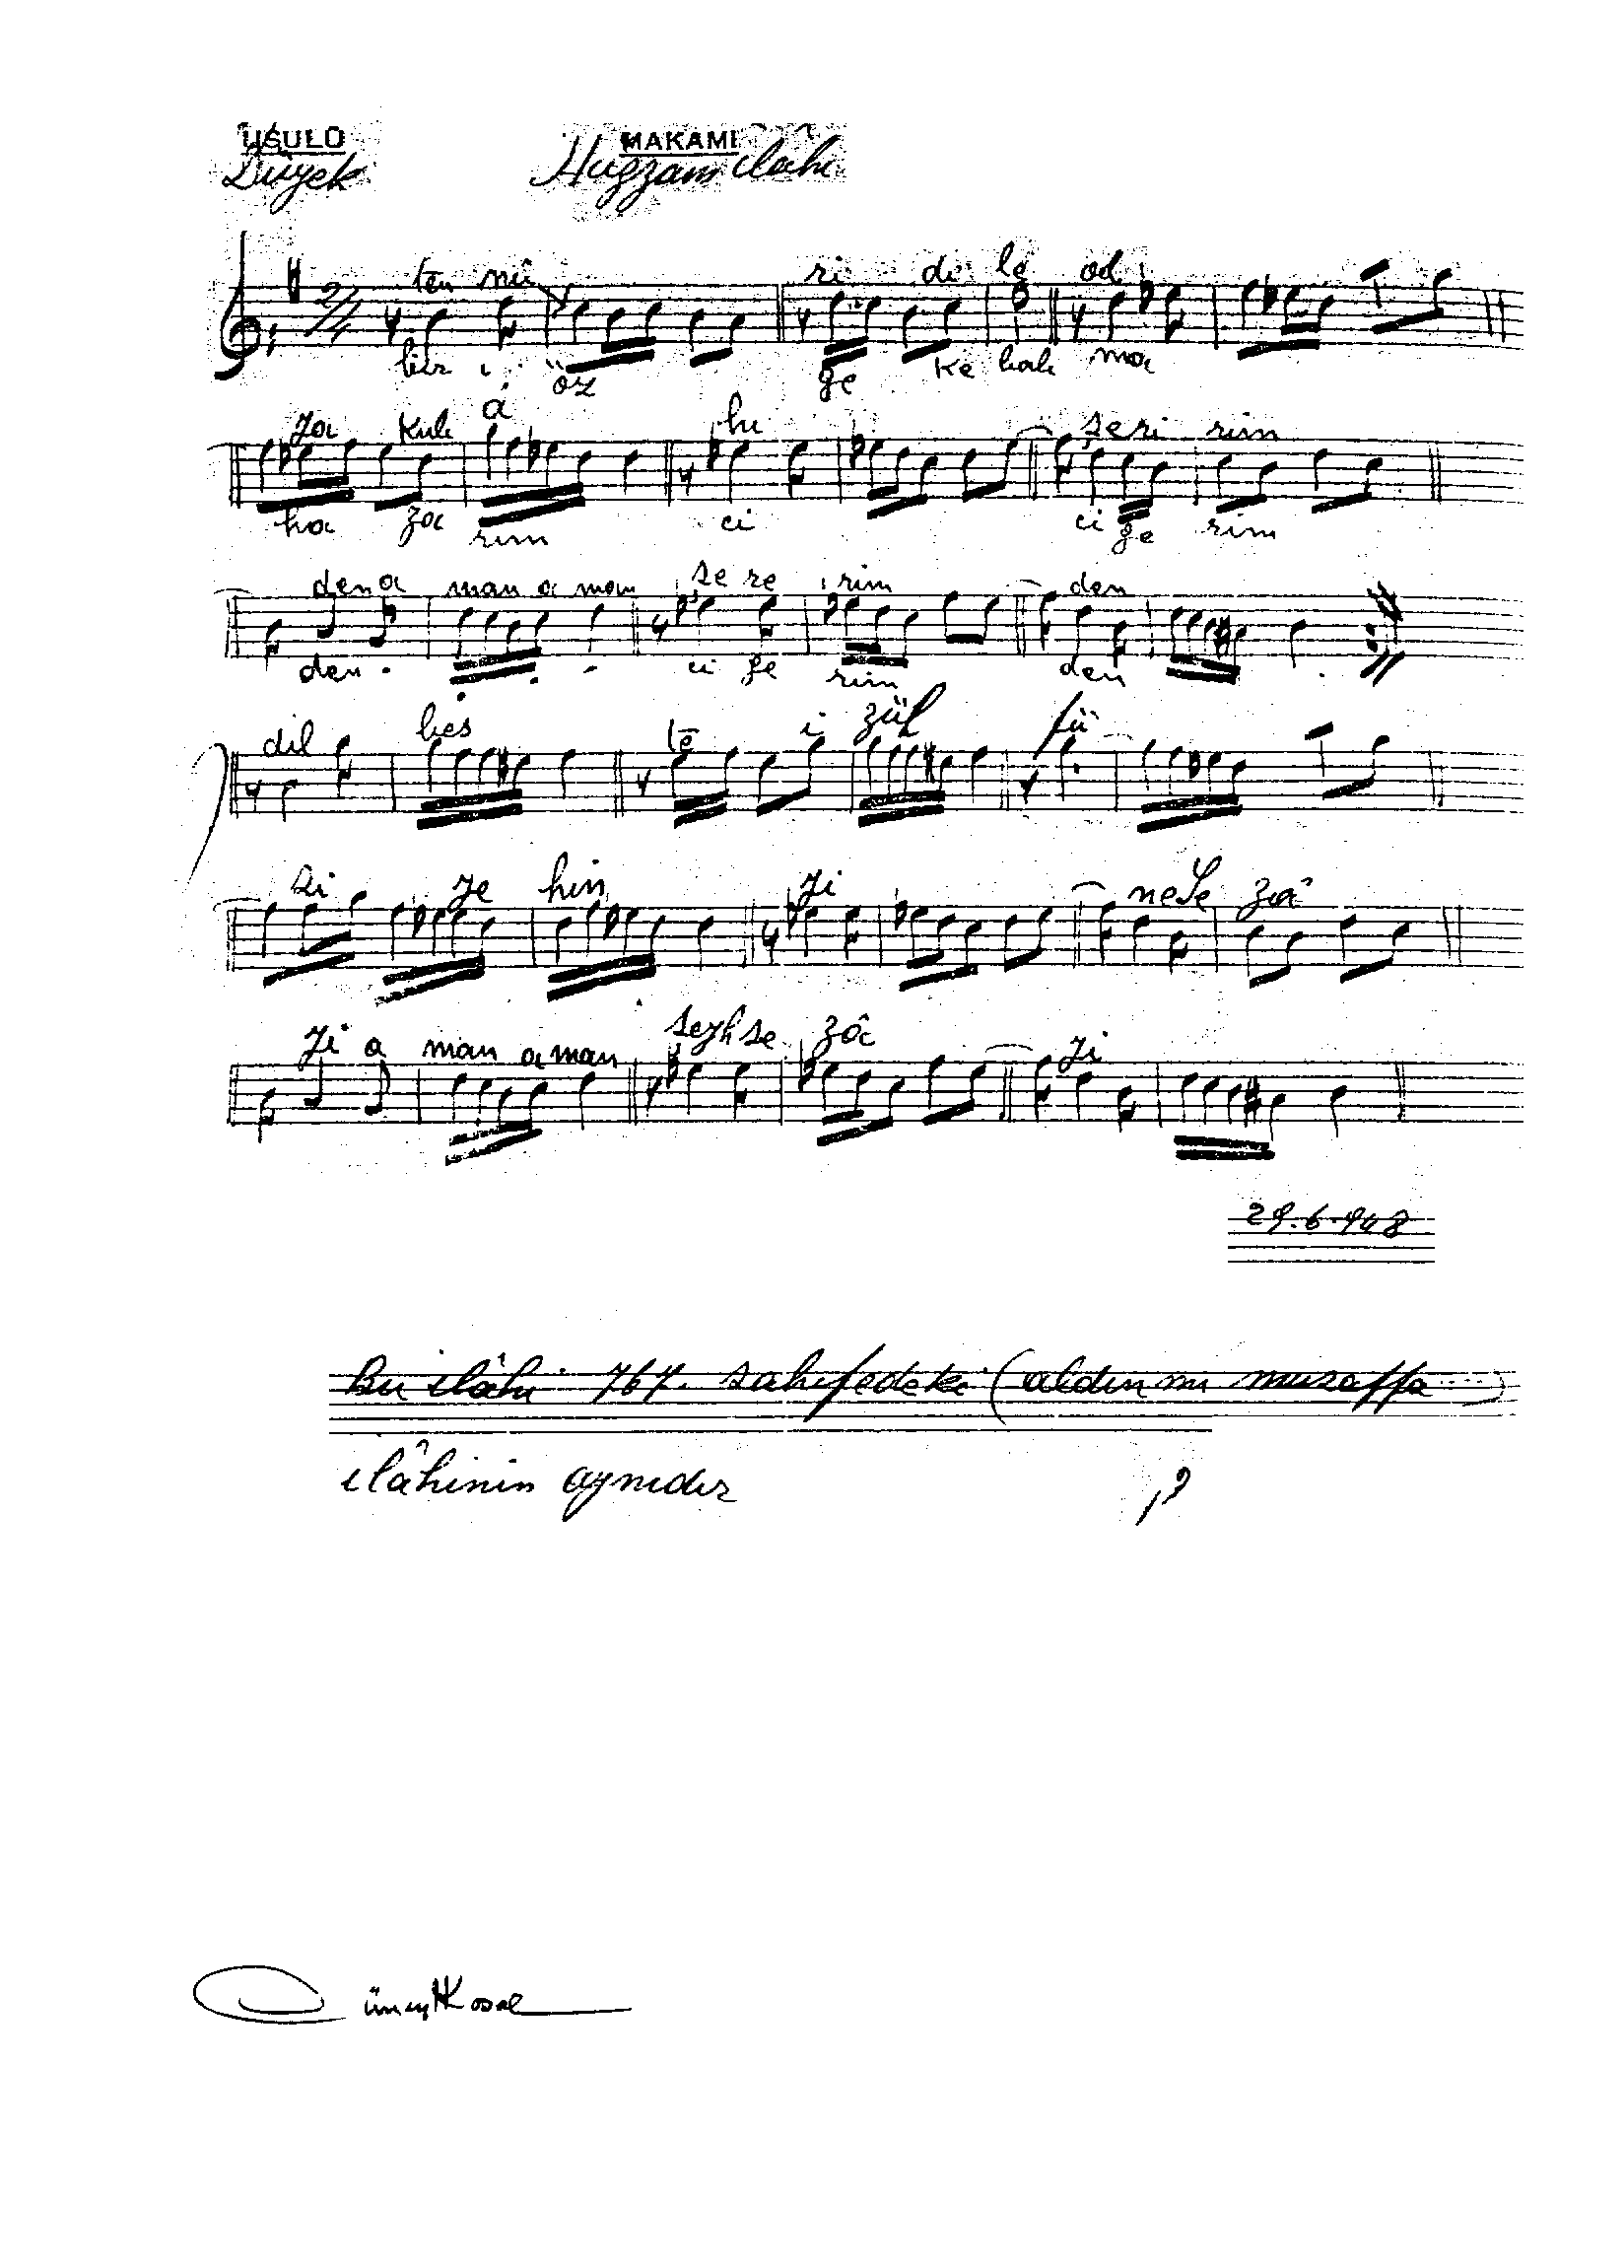 USULÜ MAKAMI
Düyek Huzzam ilâhi
ten nü ri di le od
bir i öz ge ke bak ma
ya kub â hu se ri rim
ha za rim ci ci ge rim
den a man a man se re rim den
den ci ge rim den
dil bes te i zülf fü
si ye hin yi ne Se zâ
yi a man a man seyh se zâ yi
29.6.948
Bu ilâhi 767. sahifedeki (aldın mı musaffa )
ilâhinin aynıdır
Cüneyt Kosal